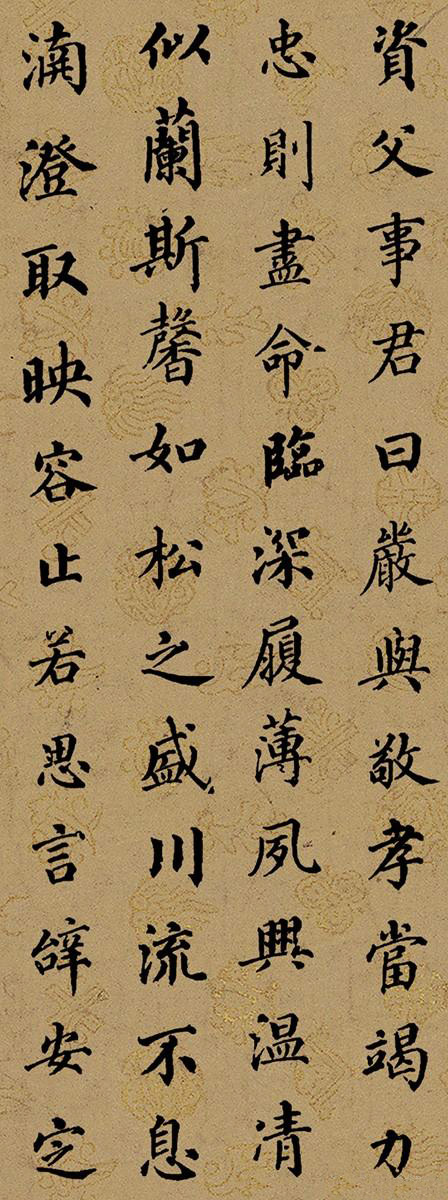 資父事君曰嚴與敬孝當竭力
忠則盡命臨深履薄夙興温凊
似蘭斯馨如松之盛川流不息
淵澄取映容止若思言辭安定